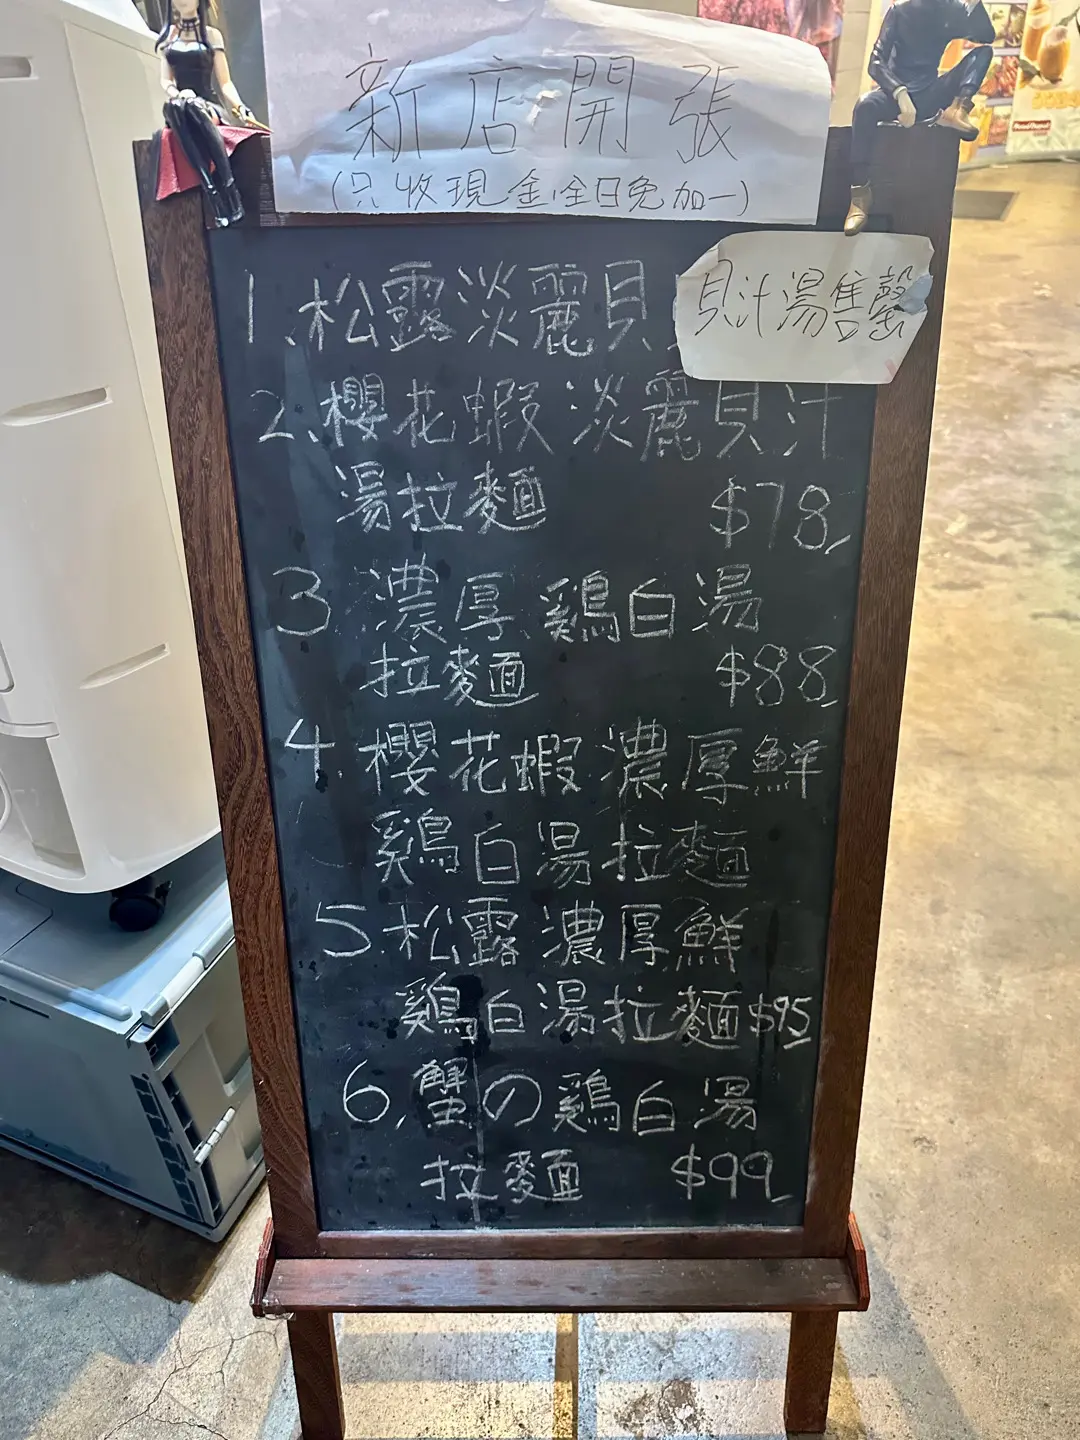 新店開張
(只收現金,全日免加一)
1.松露淡麗貝
貝汁湯售罄
2.櫻花蝦淡麗貝汁
湯拉麵 $78
3 濃厚鷄白湯
拉麵 $88
4.櫻花蝦濃厚鮮
鷄白湯拉麵
5.松露濃厚鮮
鷄白湯拉麵$95
6.蟹の鷄白湯
拉麵 $99